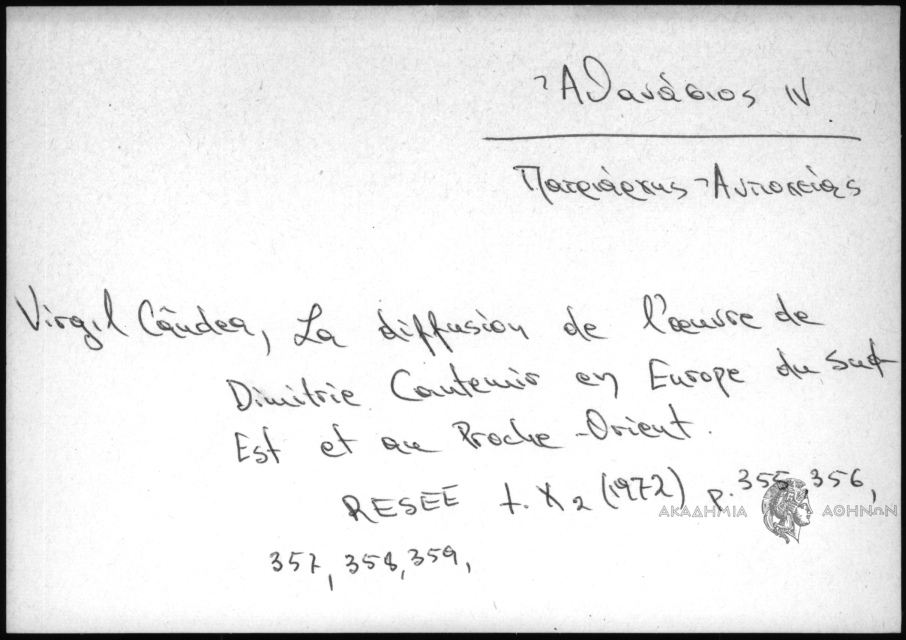 Ἀθανάσιος IV
Πατριάρχης Ἀντιοχείας
Virgil Cândea, La diffusion de l'œuvre de
Dimitrie Cantemir en Europe du Sud
Est et au Proche-Orient.
RESEE t. X2 (1972) p. 355, 356,
ΑΚΑΔΗΜΙΑ ΑΘΗΝΩΝ
357, 358, 359,